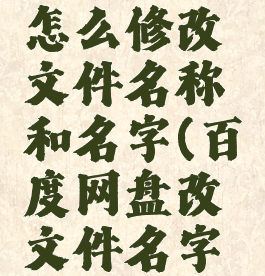 怎么修改
文件名称
和名字(百
度网盘改
文件名字